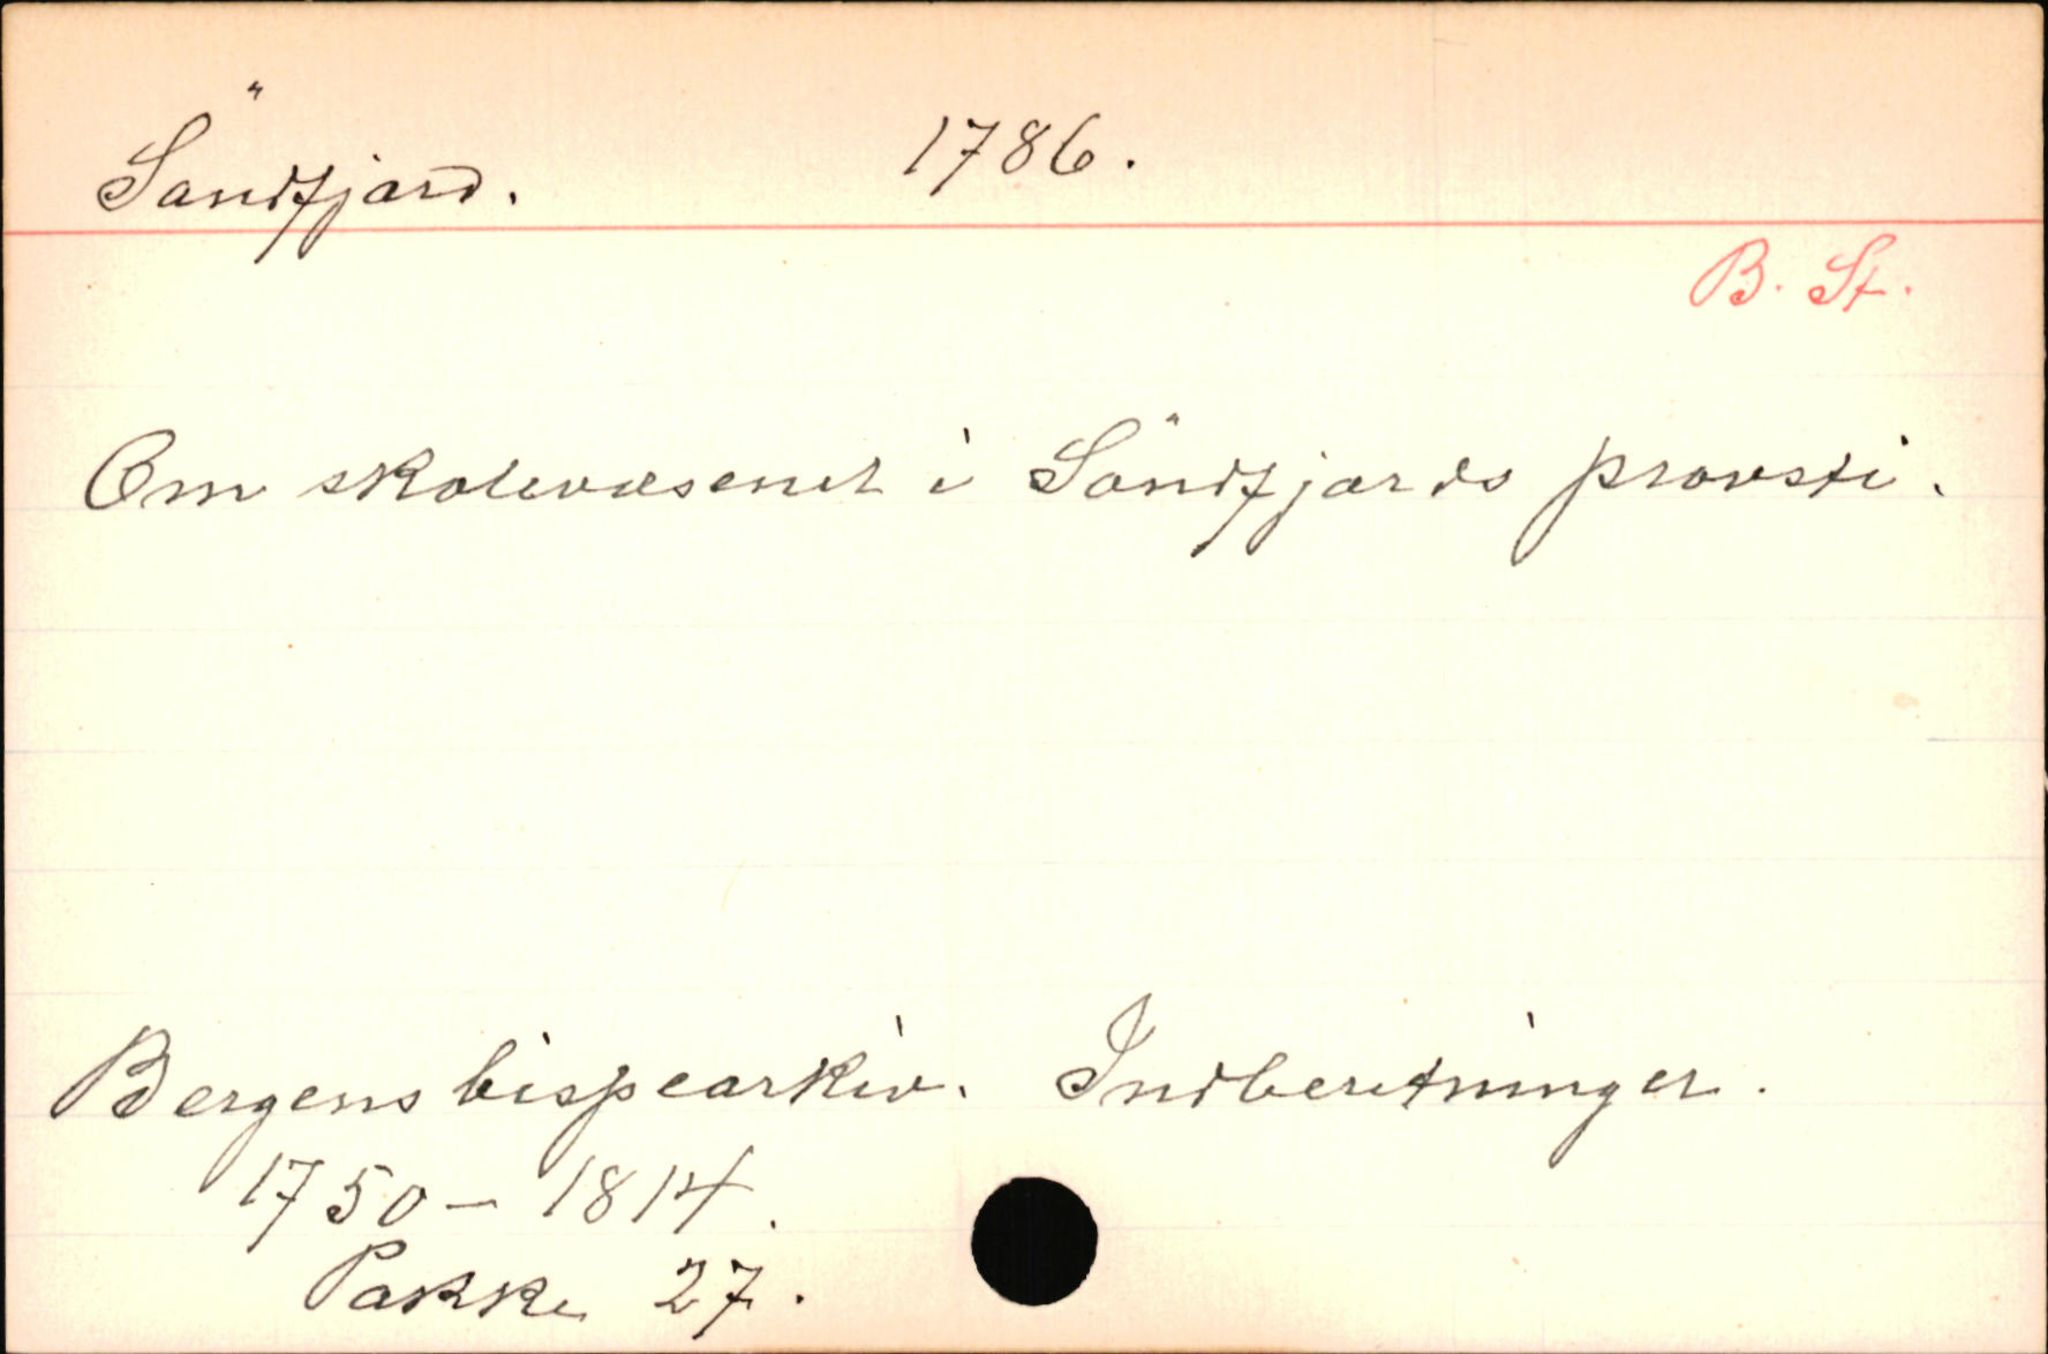 Söndfjord. 1786.
B. St.
Om skolevæsenet i Söndfjords provsti.
Bergens bispearkiv. Indberetninger.
1750 – 1814.
Pakke 27.